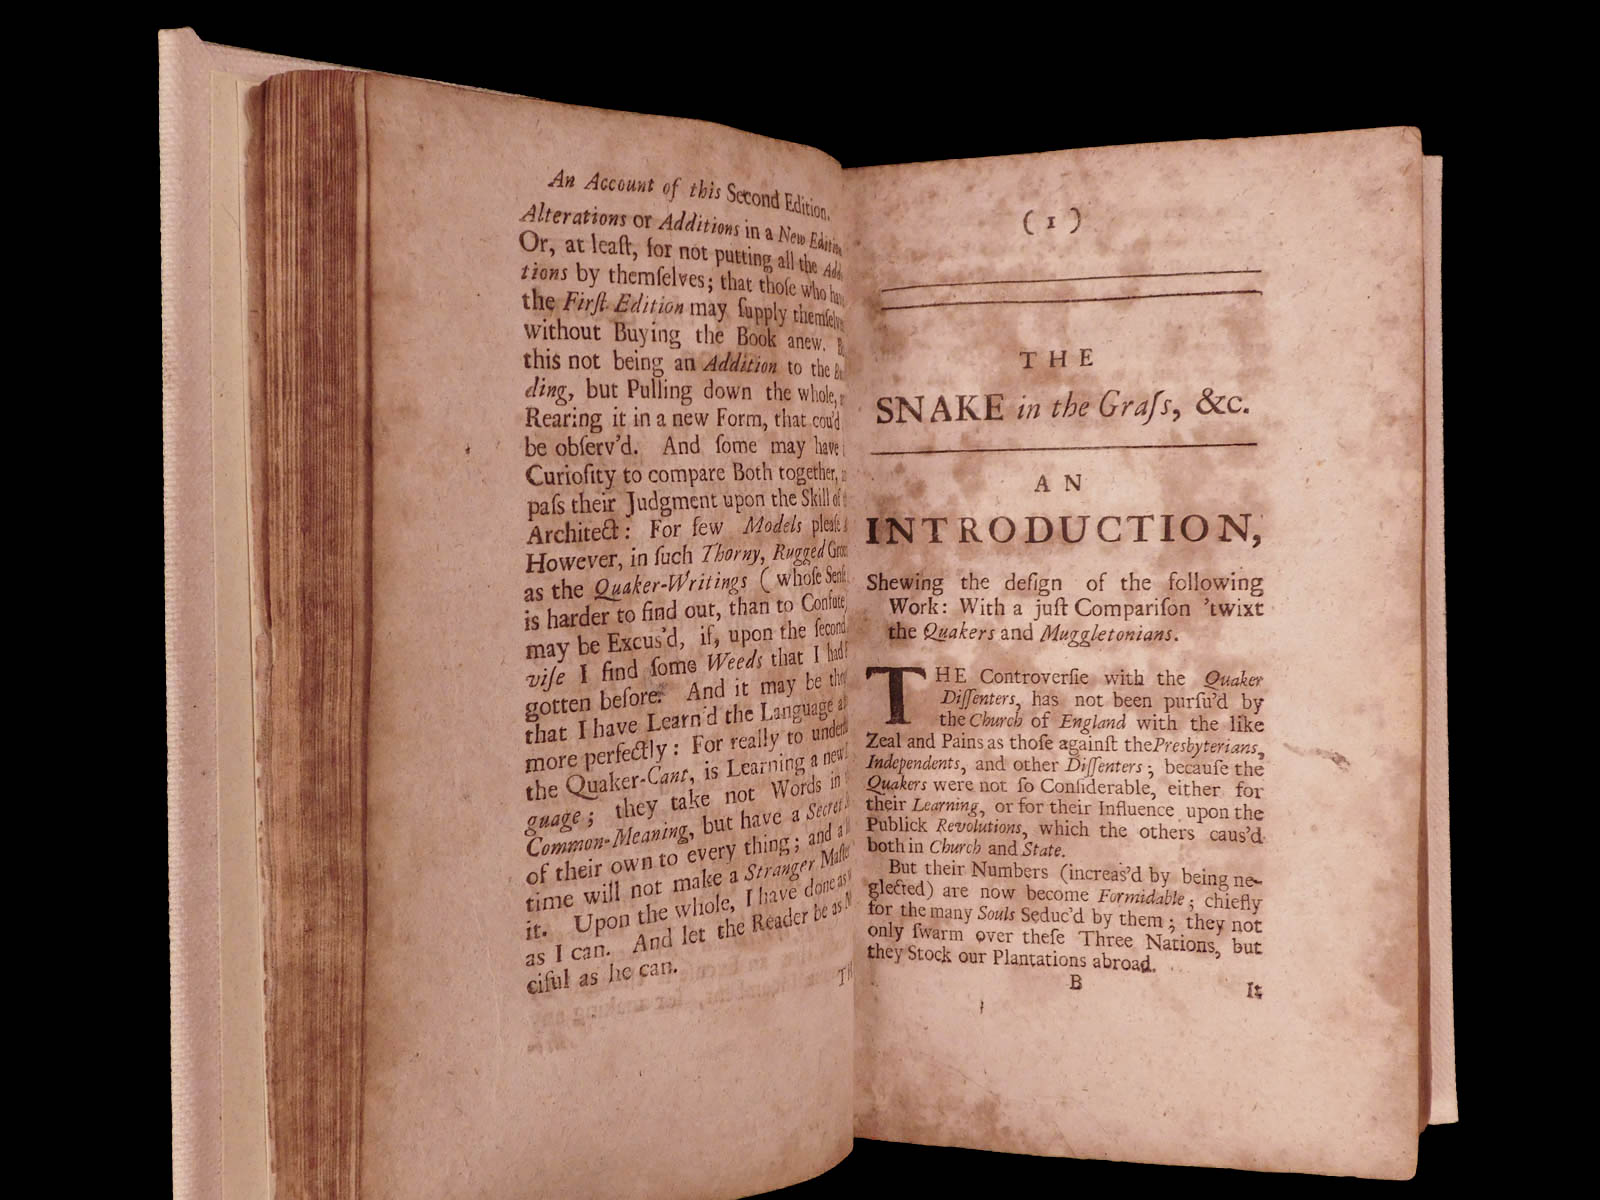 An Account of this Second Edition.
Alterations or Additions in a New Edition
Or, at leaſt, for not putting all the Addi
tions by themſelves; that thoſe who have
the Firſt Edition may ſupply themſelves
without Buying the Book anew.
this not being an Addition to the
ding, but Pulling down the whole,
Rearing it in a new Form, that cou'd
be obſerv'd. And ſome may have
Curioſity to compare Both together,
paſs their Judgment upon the Skill of
Architect: For few Models pleaſe
However, in ſuch Thorny, Rugged
as the Quaker-Writings (whoſe Senſe
is harder to find out, than to Confute,
may be Excus'd, if, upon the ſecond
viſe I find ſome Weeds that I had
gotten before. And it may be
that I have Learn'd the Language
more perfectly: For really to
the Quaker-Cant, is Learning a new
guage; they take not Words in
Common-Meaning, but have a Secret
of their own to every thing; and a
time will not make a Stranger
it. Upon the whole, I have done as
as I can. And let the Reader be as
ciful as he can.
(1)
THE
SNAKE in the Graſs, &c.
AN
INTRODUCTION,
Shewing the deſign of the following
Work: With a juſt Compariſon 'twixt
the Quakers and Muggletonians.
THE Controverſie with the Quaker
Diſſenters, has not been purſu'd by
the Church of England with the like
Zeal and Pains as thoſe againſt the Presbyterians,
Independents, and other Diſſenters; becauſe the
Quakers were not ſo Conſiderable, either for
their Learning, or for their Influence upon the
Publick Revolutions, which the others caus'd
both in Church and State.
But their Numbers (increas'd by being ne-
glected) are now become Formidable; chiefly
for the many Souls Seduc'd by them; they not
only ſwarm over theſe Three Nations, but
they Stock our Plantations abroad.
B
It